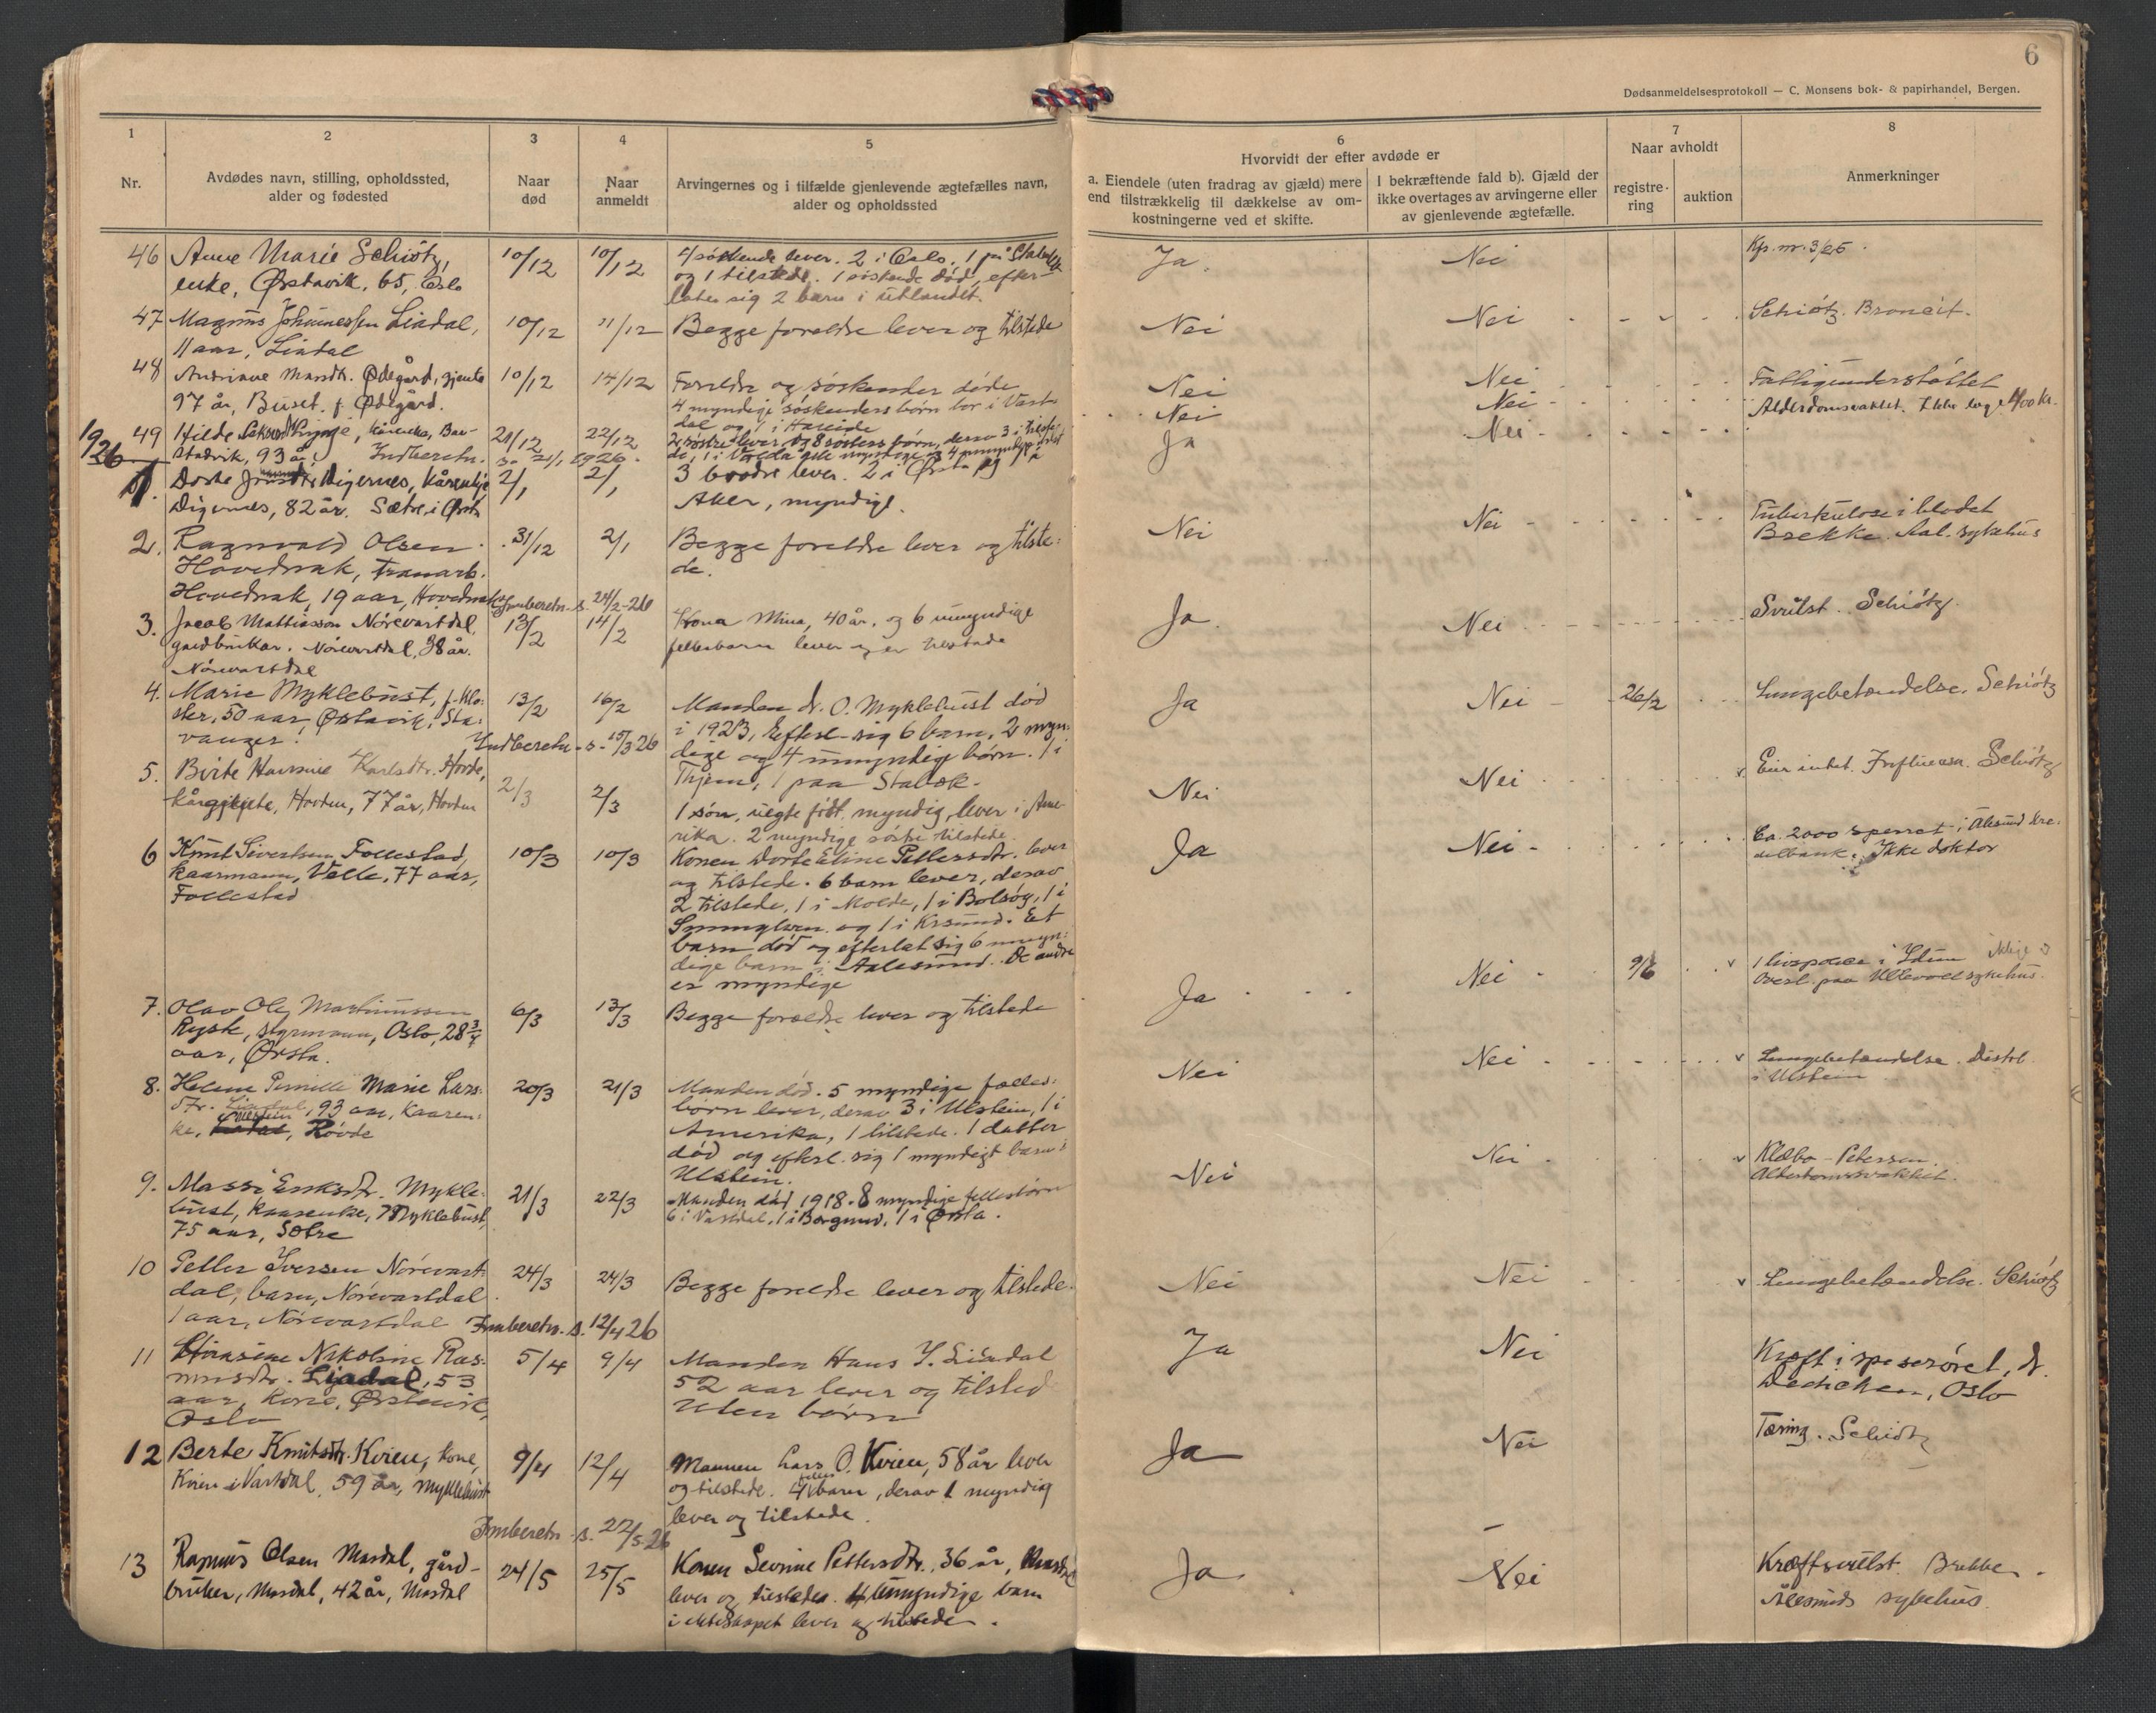 6
Dødsanmeldelsesprotokoll — C. Monsens bok- & papirhandel, Bergen.
1
2
3
4
5
6
7
8
Nr.
Avdødes navn, stilling, opholdssted,
alder og fødested
Naar
død
Naar
anmeldt
Arvingernes og i tilfælde gjenlevende ægtefælles navn,
alder og opholdssted
Hvorvidt der efter avdøde er
a. Eiendele (uten fradrag av gjæld) mere
end tilstrækkelig til dækkelse av om-
kostningerne ved et skifte.
I bekræftende fald b). Gjæld der
ikke overtages av arvingerne eller
av gjenlevende ægtefælle.
Naar avholdt
registre-
ring
auktion
Anmerkninger
46 Anne Marie Schiötz, 10/12 10/12 4 søskende lever. 2 i Oslo, 1 på Ja. Nei Kp. nr. 3/25.
enke, Ørstavik, 65, Oslo og 1 tilstede. 1 søskende død, efter-
later sig 2 barn i utlandet.
47 Magnus Johannessen Liadal, 10/12 11/12 Begge foreldre lever og tilstede Nei Nei Schiötz. Broncit.
11 aar, Liadal
48 Andriane Mandr. Ødegård, gjente 10/12 14/12 Foreldre og søskender døde Nei Nei Fattigunderstøttet
97 år, Buset. f. Ødegård. 4 myndige søskenders børn bor i Vart- Nei Nei Alderdomsvakhet.
dal og 1 i Hareide
1926
49 Hilde 21/12 22/12 2 søstre lever og 8 søsters børn, derav 3 i Ja Nei
93 år Indberetn. s. 21/1 1926.
1. Dorte Digernes, Kårenkje 2/1 2/1 3 brødre lever. 2 i Ørsta og 1 i
Digernes, 82 år. Sætre i Ørsta Aker, myndige.
2. Ragnvald Olsen 31/12 2/1 Begge foreldre lever og tilste- Nei Nei Tuberkulose i blodet
Hovdenak, tranarb. de. Brekke. Aal. sykehus
Hovdenak, 19 aar, Hovdenak Innberetn. s. 24/2-26
3. Jacob Mattiasson Nórevartdal, 13/2 14/2 Kona Mina, 40 år, og 6 umyndige Ja. Nei Svulst. Schiötz.
gardbrukar. Nórevartdal, 38 år. fellesbarn lever og er tilstade
Nórevartdal
4. Marie Myklebust, f. Klo- 13/2 16/2 Manden d. O. Myklebust død Ja Nei 26/2 Lungebetændelse. Schiötz
ster, 50 aar, Ørstavik, Sta- i 1923, Efterl. sig 6 barn, 2 myn-
vanger. Indberetn. s. 15/3 26 dige og 4 umyndige børn. 1 i
Thjem, 1 paa Stabæk.
5. Birte Karlsdtr. Hovde, 2/3 2/3 1 søn, uegte født, myndig, lever i Ame- Nei Nei Eier intet. Influensa. Schiötz
kårgjente, Hovden, 77 år, Hovden rika. 2 myndige søstre tilstede.
6 Knut Sivertsen Follestad, 10/3 10/3 Konen Dorte Eline Pettersdtr. lever Ja Nei Ca. 2000 sperret i Ålesund Kre-
kaarmann, Velle, 77 aar, og tilstede. 6 barn lever, derav ditbank. Ikke doktor
Follestad 2 tilstede, 1 i Molde, 1 i Bolsøy, 1 i
og 1 i Krsund. Et
barn død og efterlat sig 6 myn-
dige barn i Aalesund. De andre
er myndige
7. Olav Ole Martinussen 6/3 13/3 Begge foreldre lever og tilstede Ja Nei 9/6 1 livspolice i Idun
Ryste, styrmann, Oslo, 28 3/4 paa Ullevaal sykehus.
aar, Ørsta.
8. Helene Pernille Marie Lars- 20/3 21/3 Manden død. 5 myndige fælles- Nei Nei Lungebetændelse.
dtr. Liadal, 93 aar, kaaren- børn lever, derav 3 i Ulstein, 1 i i Ulstein
ke, Ulstein, Rövde Amerika, 1 tilstede. 1 datter
død og efterl. sig 1 myndigt barn i
Ulstein.
9. Massi Eriksdtr. Mykle- 21/3 22/3 Manden død 1918. 8 myndige fellesbörn Nei Nei Klæbo-Petersen
bust, kaarenke, Myklebust, 6 i Vartdal, 1 i Borgund, 1 i Ørsta. Alderdomssvakhet.
75 aar, Sætre
10 Petter Iversen Nórevart- 24/3 24/3 Begge foreldre lever og tilstede. Nei Nei Lungebetændelse. Schiötz
dal, barn, Nórevartdal
1 aar, Nórevartdal Innberetn. s. 12/4 26
11 Nikoline Ras- 5/4 9/4 Manden Hans J. Liadal Ja Nei Kræft i spiserøret, dr.
musdtr. Liadal, 53 52 aar lever og tilsted Oslo
aar, kone, Ørstavik, Uten børn
Oslo
12 Berte Knutsdtr. Kvien, kone, 9/4 12/4 Mannen Lars O. Kvien, 58 år lever Ja Nei Tæring. Schiötz
Kvien i Vartdal, 59 år, Myklebust og tilstede. 4 felles barn, derav 1 myndig
lever og tilstede.
Innberetn. s. 22/5-26
13 Rasmus Olsen Masdal, gård- 24/5 25/5 Konen Sevrine Pettersdtr. 36 år, Masdal Ja. Nei Kræftsvulst. Brekke.
bruker, Masdal, 42 år, Masdal lever og tilstedes. 4 umyndige barn Ålesunds sykehus.
i ekteskapet lever og tilstede.